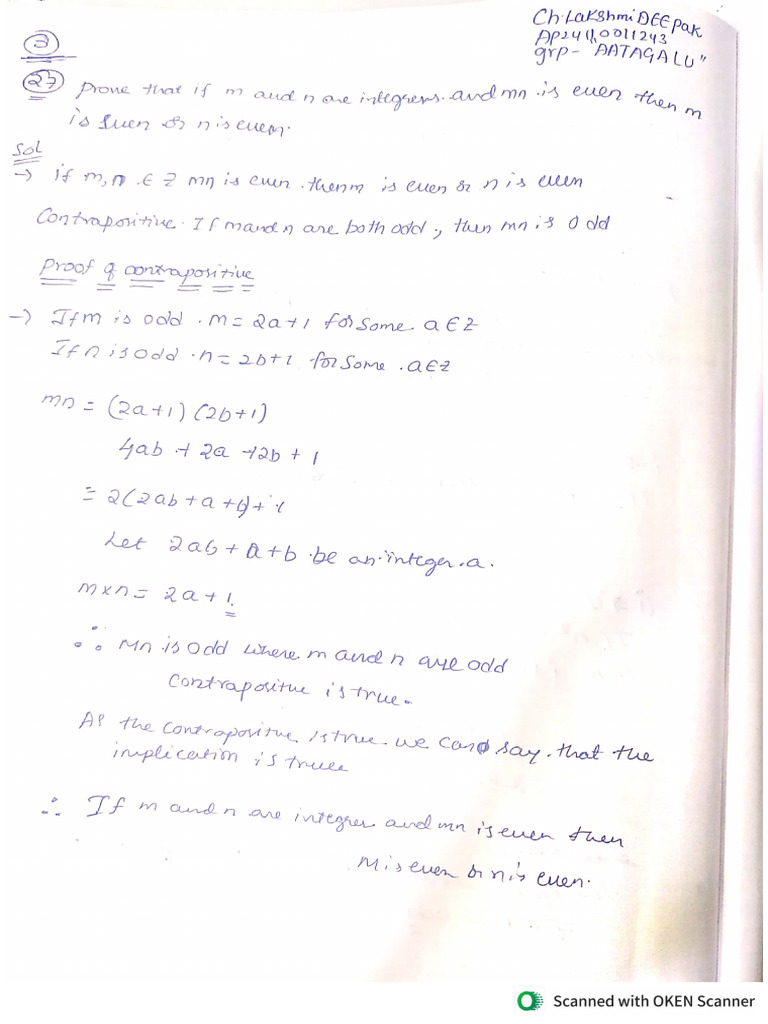 Ch.Lakshmi DEEPAK
AP24110011243
grp- "AATAGALU"
3
27 prove that if m and n are integers. and mn is even then m
is even or n is even.
Sol
→ if m, n ∈ Z mn is even. then m is even or n is even
Contrapositive. If m and n are both odd, then mn is odd
Proof of contrapositive
→ If m is odd. m = 2a+1 for some. a∈Z
If n is odd. n = 2b+1 for some. a∈Z
mn = (2a+1) (2b+1)
4ab + 2a + 2b + 1
= 2(2ab + a + b) + 1
Let 2ab + a + b be an integer. a.
m×n = 2a + 1.
∴ Mn is odd where m and n are odd
contrapositive is true.
As the contrapositive is true we can say. that the
implication is truee
∴ If m and n are integers and mn is even then
M is even or n is even.
Scanned with OKEN Scanner